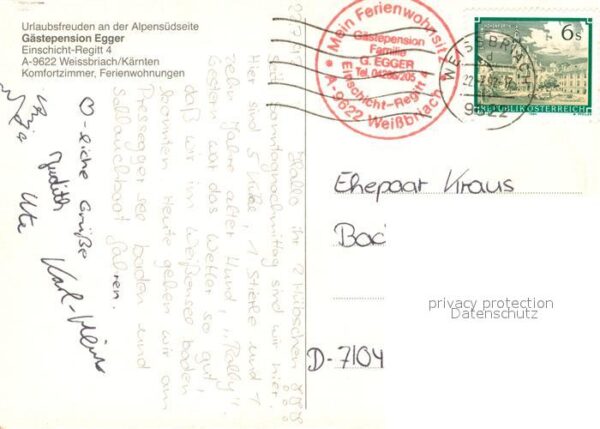 Urlaubsfreuden an der Alpensüdseite
Gästepension Egger
Einschicht-Regitt 4
A-9622 Weissbriach/Kärnten
Komfortzimmer, Ferienwohnungen
Mein Ferienwohnsitz
Gästepension
Familie
G. EGGER
Tel. 04286/205
Einschicht-Regitt 4
A-9622 Weißbriach
WEISSBRIACH
9622
6 S
REPUBLIK ÖSTERREICH
Hallo ihr 2 Hübschen
Seit Sonntagnachmittag sind wir hier.
Hier sind 5 Kühe, 1 Stierle und 1
zehn Jahre alter Hund, "
Gestern war das Wetter so gut,
daß wir im Weißensee baden
konnten. Heute gehen wir am
Pressegger See baden und
Schlauchboot fahren.
-liche Grüße
Judith
Ute
Karl-Heinz
Ehepaar Kraus
D-7104
privacy protection
Datenschutz